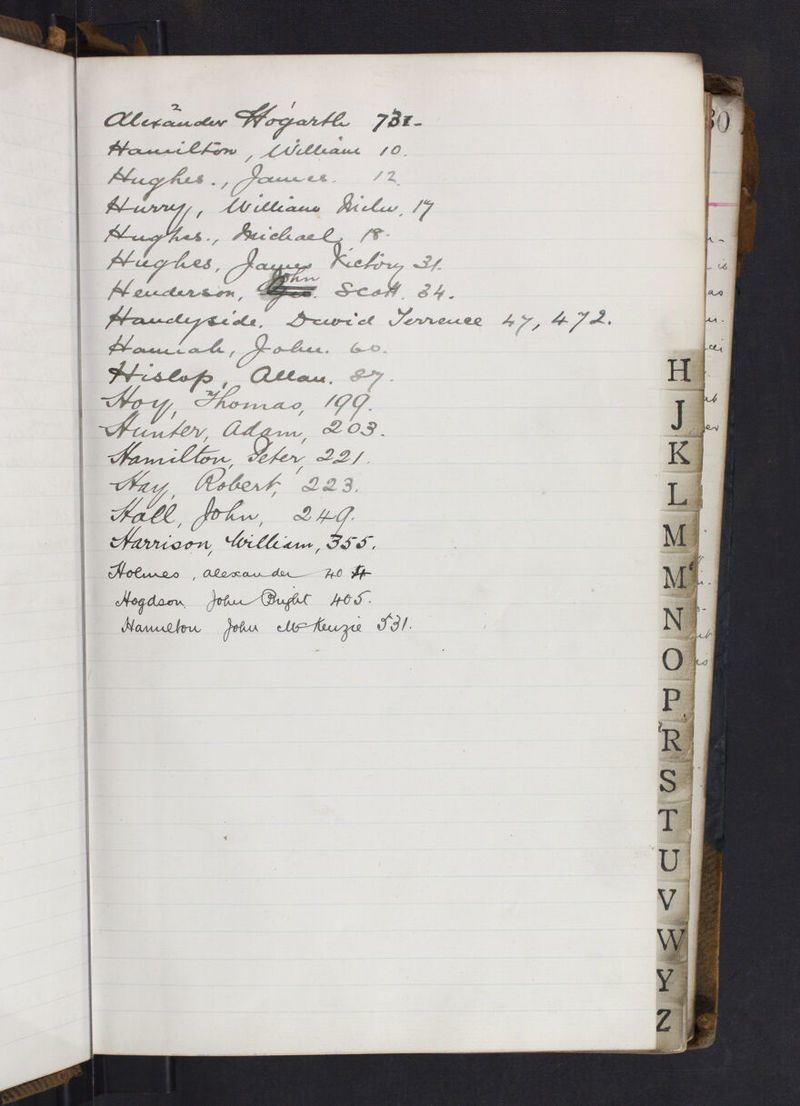 Alexander Hogarth 731-
Hamilton, William 10.
Hughes., James. 12.
Hurry, William Milne, 17
Hughes., Michael, 18.
Hughes, James Victory 31.
Henderson, John Scott. 34.
Handyside, David Terrence 47, 472.
Hannah, John. 60.
Hislop, Allan. 87.
Hoy, Thomas, 199.
Hunter, Adam, 203.
Hamilton, Peter, 221.
Hay, Robert, 223.
Hall, John, 249.
Harrison, William, 355.
Holmes, Alexander 404
Hogdson John Bright 405.
Hamilton John McKenzie 531.
30
H
J
K
L
M
Mc
N
O
P
R
S
T
U
V
W
Y
Z